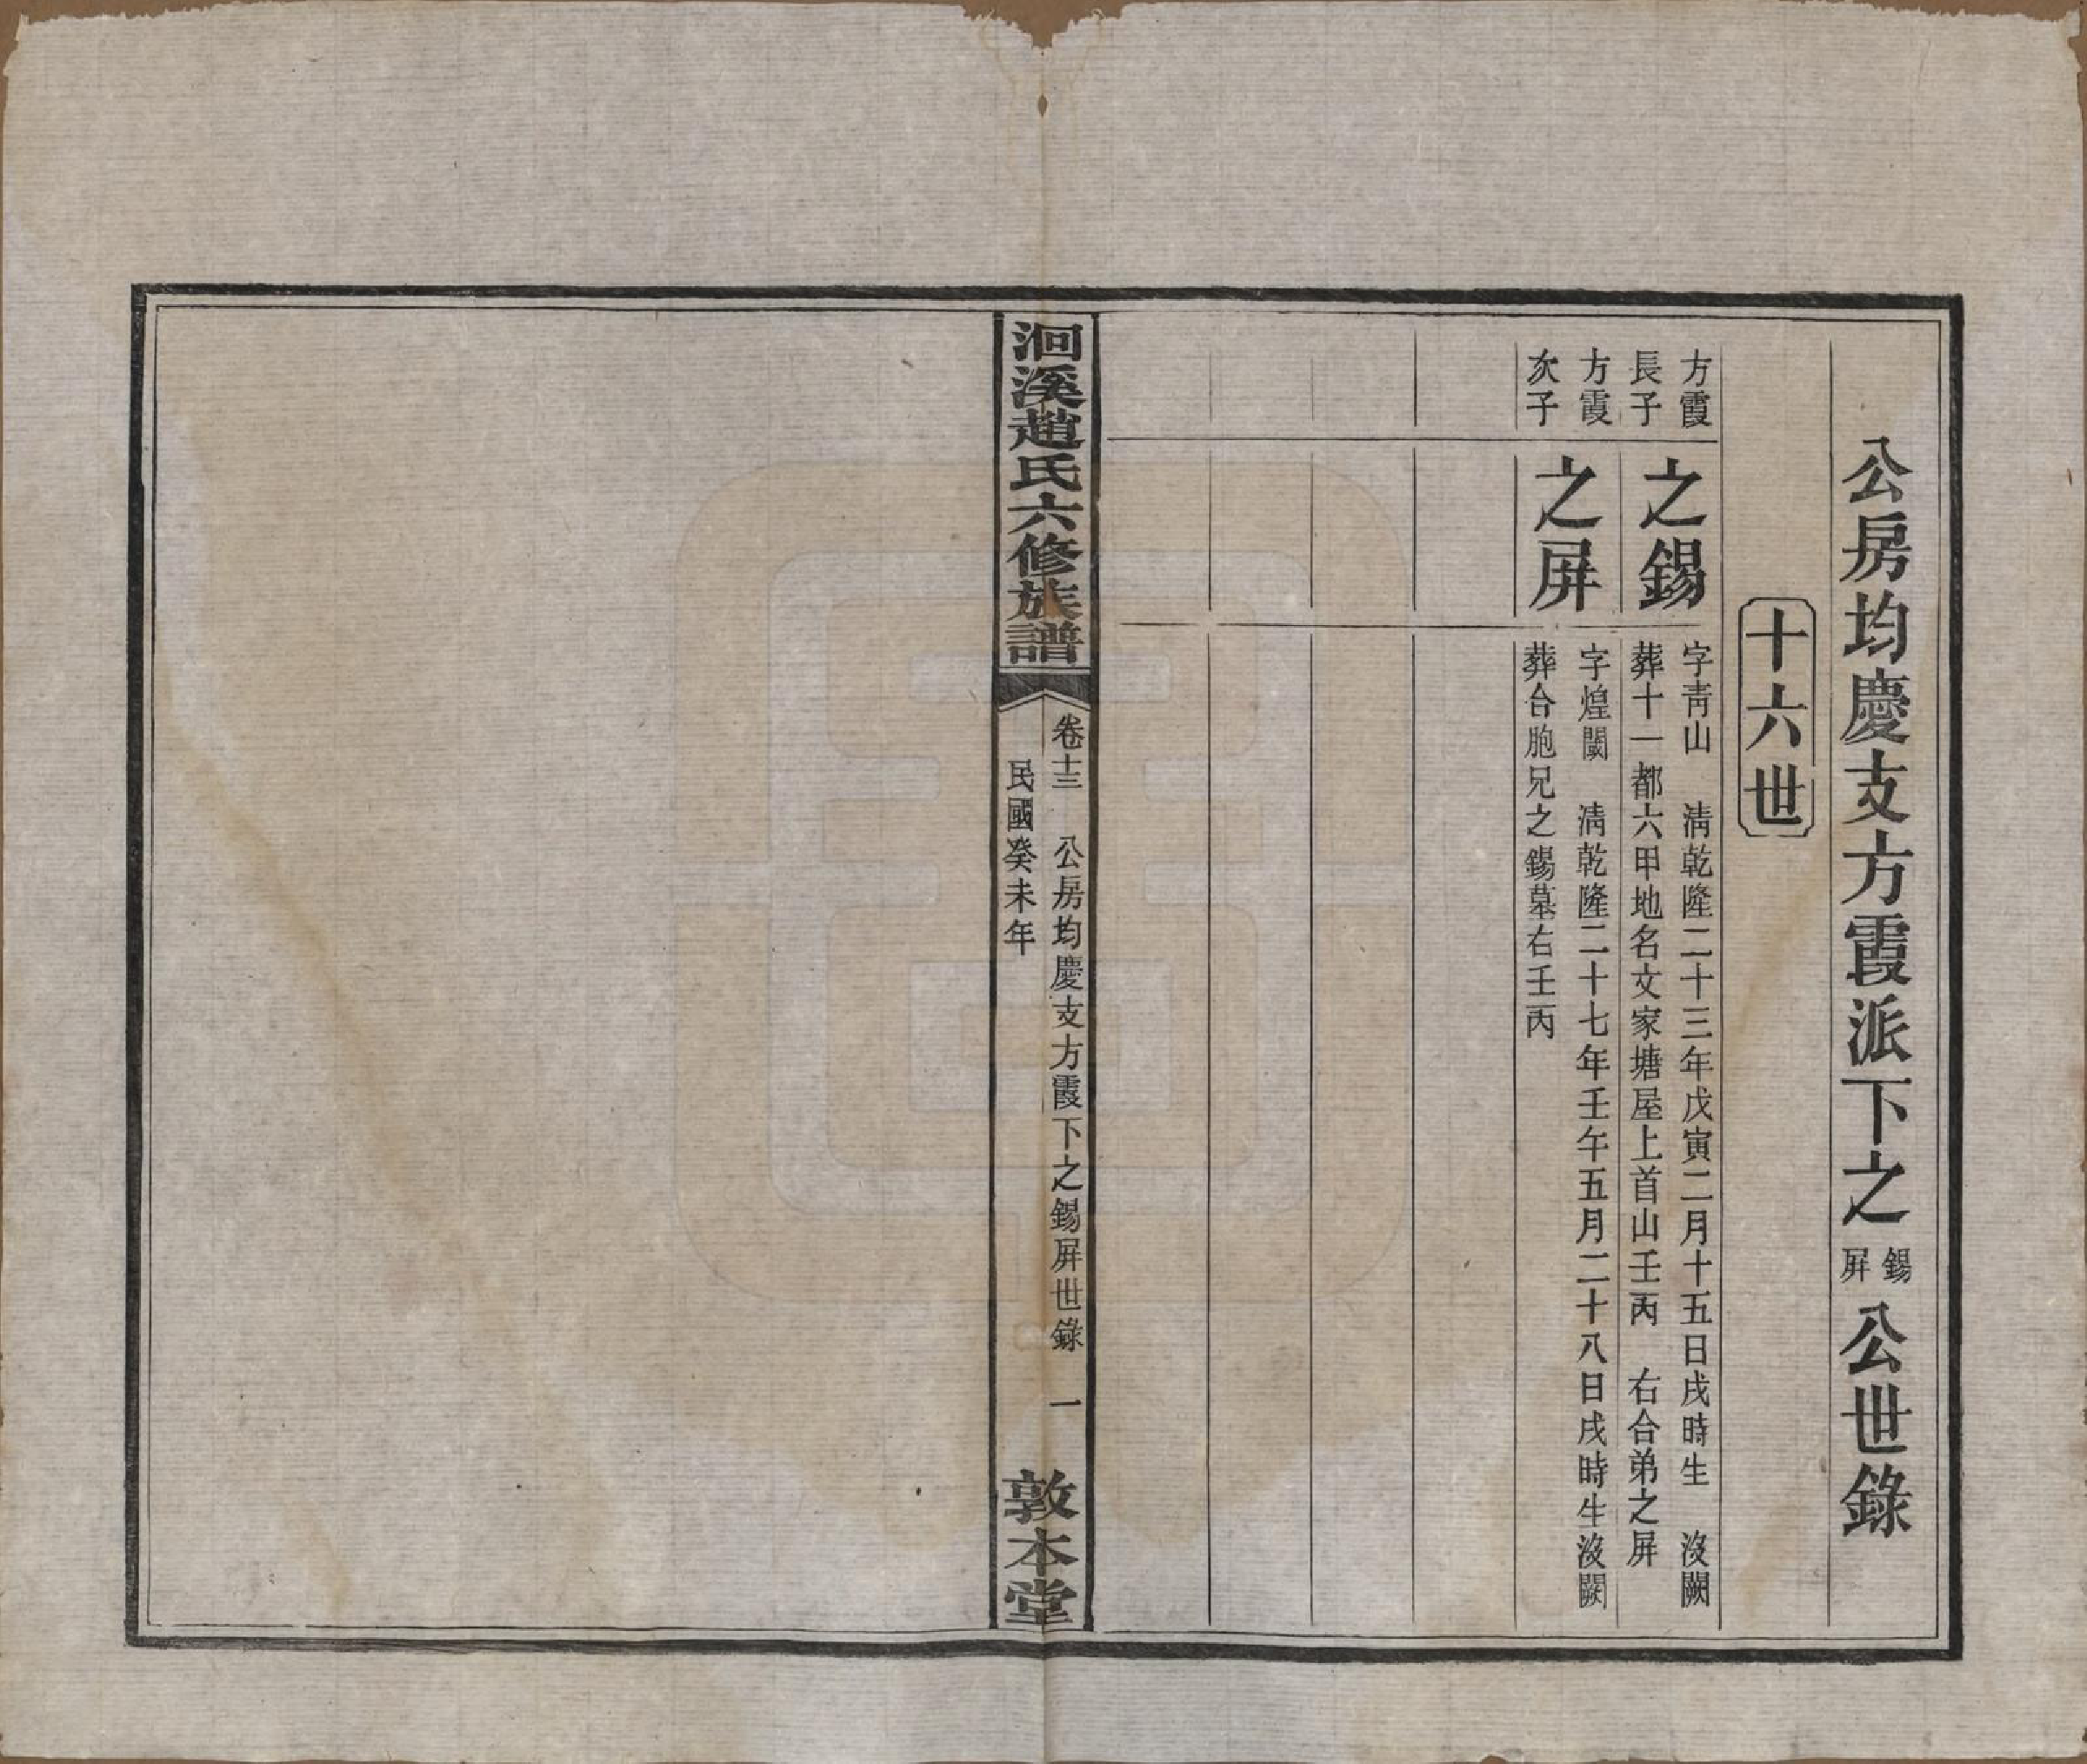 公房均慶支方霞派下之錫屏公世錄
十六世
方霞長子
之錫
字青山　清乾隆二十三年戊寅二月十五日戌時生　沒闕
葬十一都六甲地名文家塘屋上首山壬丙　右合弟之屏
方霞次子
之屏
字煌闓　清乾隆二十七年壬午五月二十八日戌時生沒闕
葬合胞兄之錫墓右壬丙
洄溪趙氏六修族譜
卷十三　公房均慶支方霞下之錫屏世錄　一
民國癸未年
敦本堂